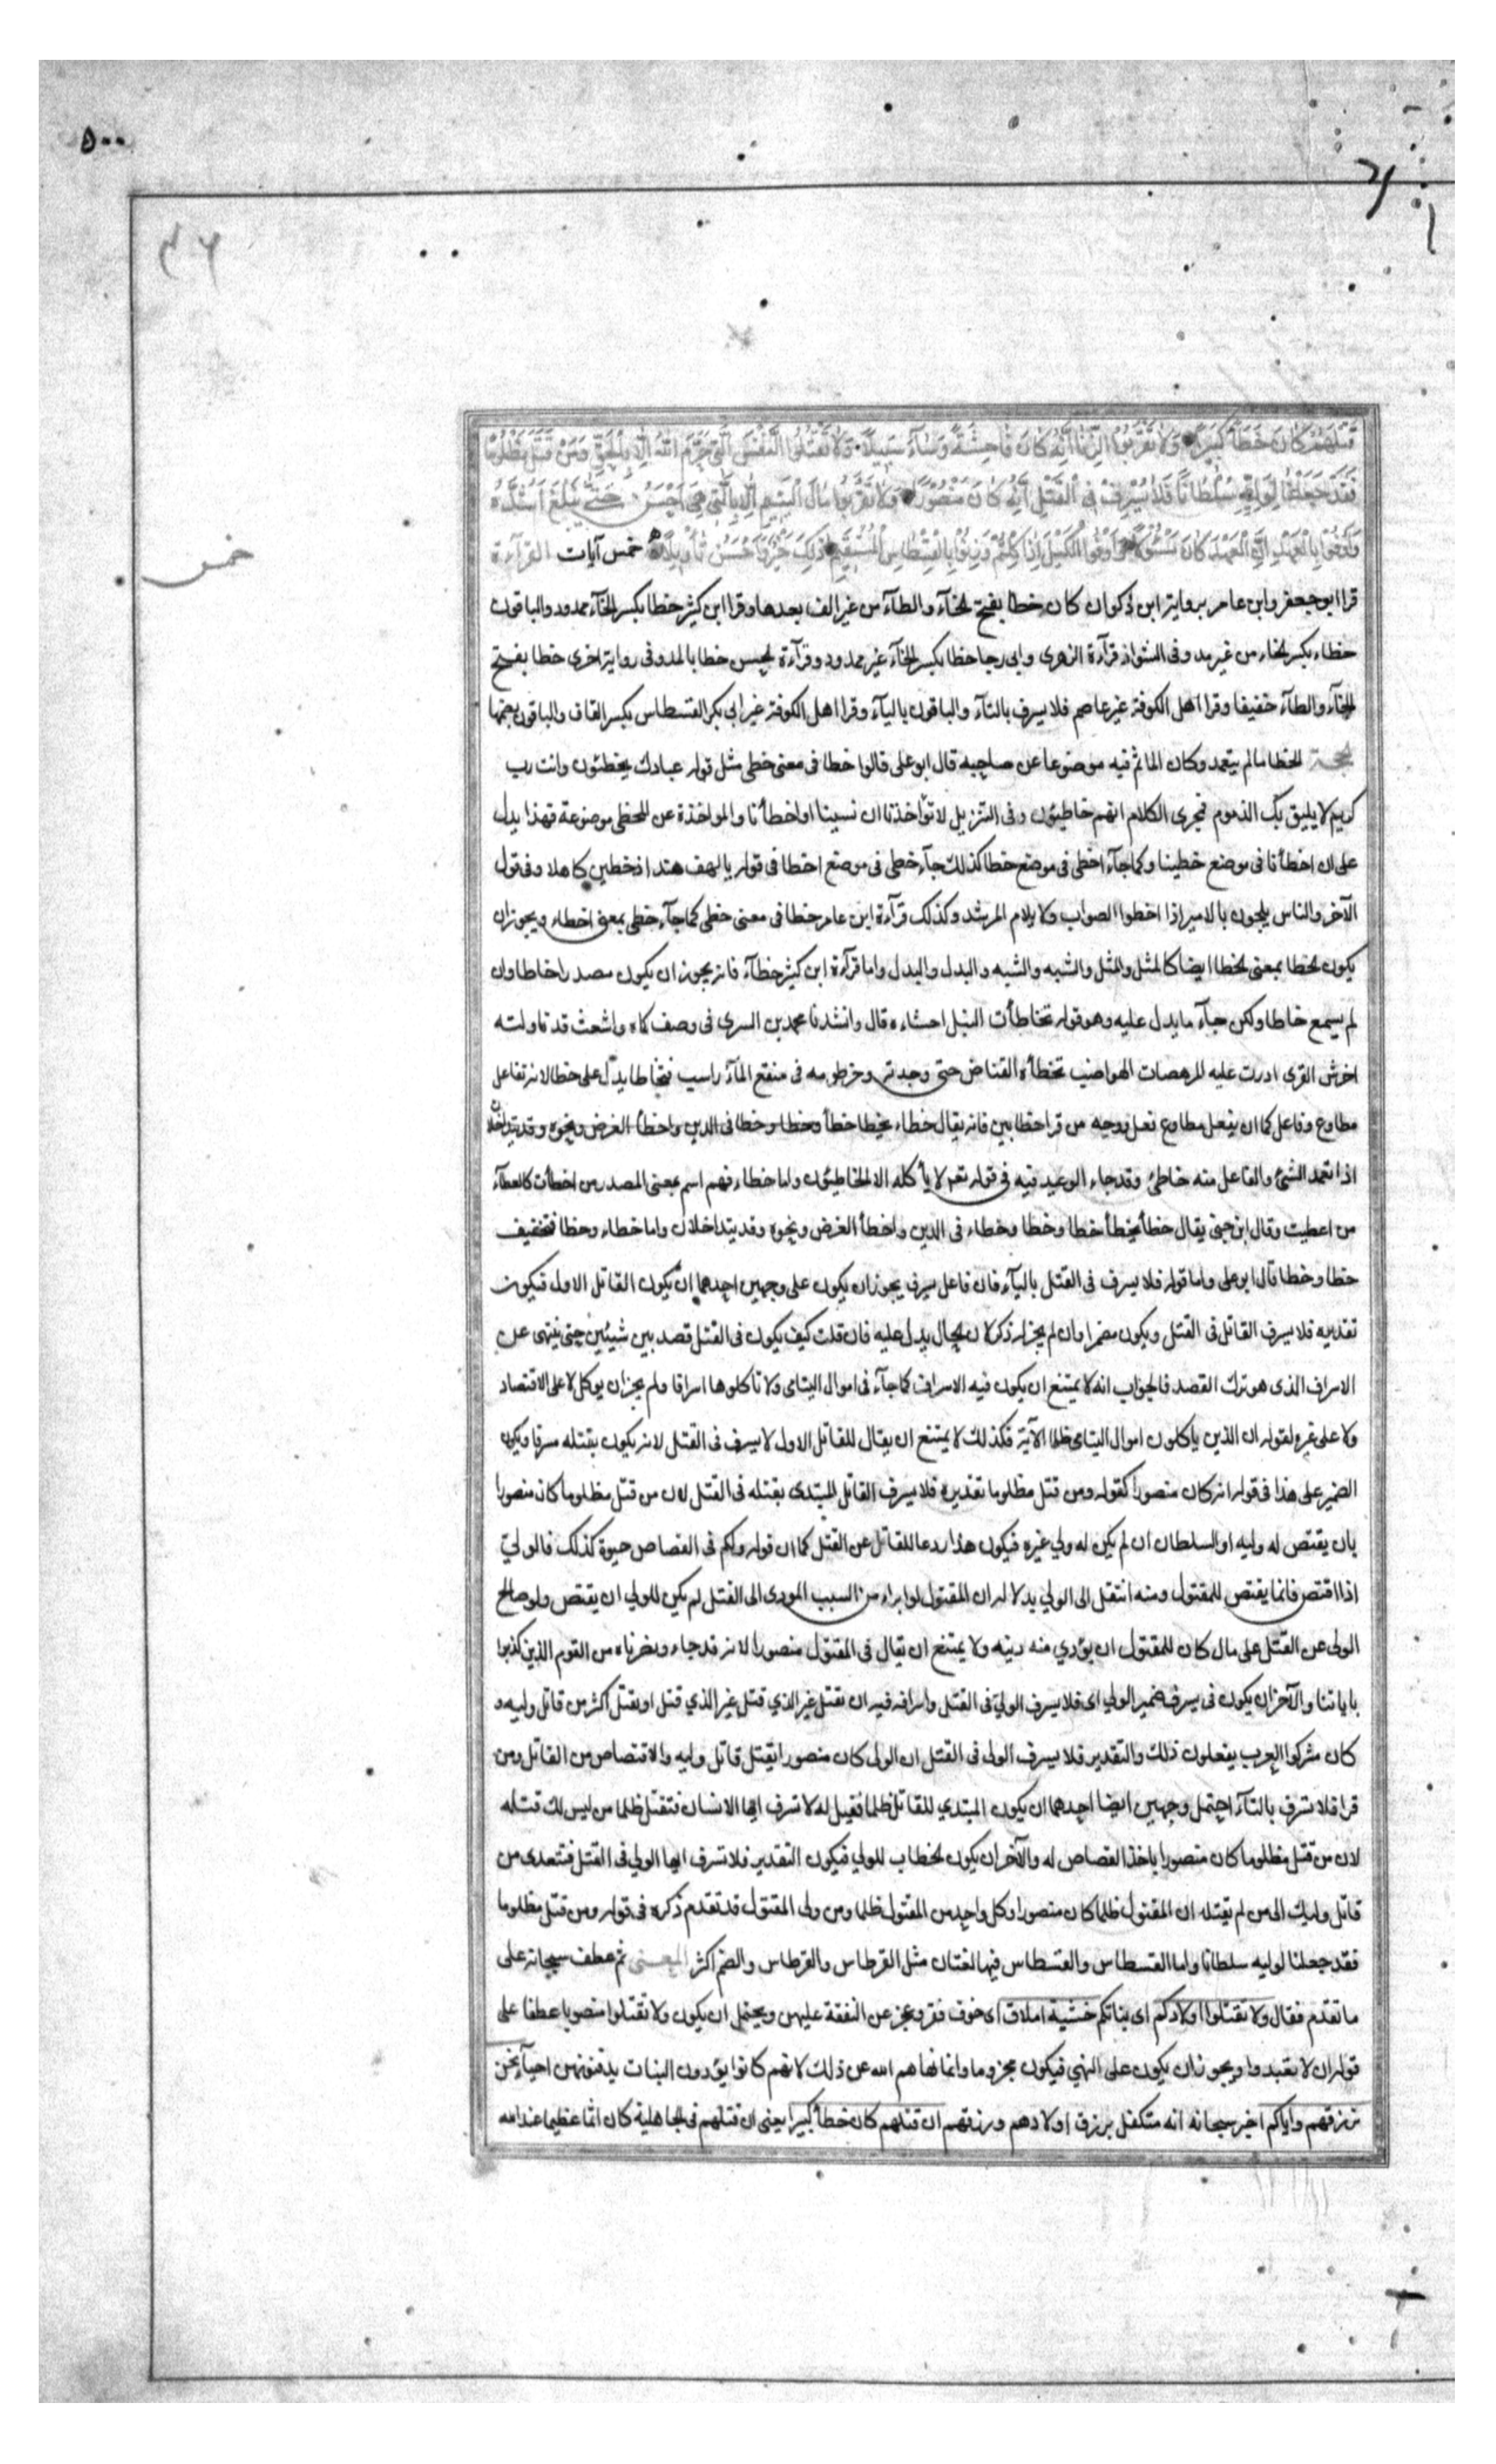 ٥٠٠
٤٦
خمس
قَتْلَهُمْ كَانَ خِطْأً كَبِيرًا وَلَا تَقْرَبُوا الزِّنَا إِنَّهُ كَانَ فَاحِشَةً وَسَاءَ سَبِيلًا وَلَا تَقْتُلُوا النَّفْسَ الَّتِي حَرَّمَ اللَّهُ إِلَّا بِالْحَقِّ وَمَنْ قُتِلَ مَظْلُومًا
فَقَدْ جَعَلْنَا لِوَلِيِّهِ سُلْطَانًا فَلَا يُسْرِفْ فِي الْقَتْلِ إِنَّهُ كَانَ مَنْصُورًا وَلَا تَقْرَبُوا مَالَ الْيَتِيمِ إِلَّا بِالَّتِي هِيَ أَحْسَنُ حَتَّى يَبْلُغَ أَشُدَّهُ
وَأَوْفُوا بِالْعَهْدِ إِنَّ الْعَهْدَ كَانَ مَسْئُولًا وَأَوْفُوا الْكَيْلَ إِذَا كِلْتُمْ وَزِنُوا بِالْقِسْطَاسِ الْمُسْتَقِيمِ ذَلِكَ خَيْرٌ وَأَحْسَنُ تَأْوِيلًا خمس آيات القرآءة
قرا ابو جعفر وابن عامر برواية ابن ذكوان كان خطا بفتح الخآء والطآء من غير الف بعدها وقرا ابن كثير خطا بكسر الخآء ممدود والباقون
خطاء بكسر الخاء من غير مد وفى الشواذ قرآءة الزهرى وابى رجا خطا بكسر الخآء غير ممدود وقرآءة الحسن خطا بالمد وفى رواية اخرى خطا بفتح
الخآء والطآء خفيفا وقرا اهل الكوفة غير عاصم فلا يسرف بالتآء والباقون باليآء وقرا اهل الكوفة غير ابى بكر القسطاس بكسر القاف والباقون بضمها
الحجة الخطا ما لم يتعمد وكان الماثم فيه موضوعا عن صاحبه قال ابو على قالوا خطا فى معنى خطى مثل قوله عبادك يخطئون وانت رب
كريم لا يليق بك الذموم فجرى الكلام انهم خاطيئون وفى التنزيل لا تؤاخذنا ان نسينا او اخطأنا والمواخذة عن المخطى موضوعة فهذا يدل
على ان اخطأنا فى موضع خطينا وكما جآء اخطى فى موضع خطا كذلك جآء خطى فى موضع اخطا فى قوله يا لهف هند اذ خطين كاهلا وفى قول
الآخر والناس يلحون بالامير اذا اخطوا الصواب ولا يلام المرشد وكذلك قرآءة ابن عامر خطا فى معنى خطى كما جآء خطى بمعنى اخطاء ويجوز ان
يكون الخطا بمعنى الخطا ايضا كالمثل والمثل والشبه والشبه والبدل والبدل واما قرآءة ابن كثير خطآء فانه يجوز ان يكون مصدر اخاطا وان
لم يسمع خاطا ولكن جآء ما يدل عليه وهو قوله تخاطأت النبل احشاءه قال وانشدنا محمد بن السرى فى وصف كماه واشعث قد ناولته
اخرش القرى ادرت عليه المرهصات الهواضب تخطأه القناص حتى وجدته وخرطومه فى منقع المآء راسب فتخاطا يدل على خطا لانه تفاعل
مطاوع وفاعل كما ان يفعل مطاوع فعل ووجه من قرا خطا بين فانه يقال خطاء يخطا خطأ وخطا وخطا فى الدين واخطأ الغرض ونحوه وقد يتداخلان
اذا تعمد الشئ والفاعل منه خاطئ وقد جاء الوعيد فيه فى قوله تعم لا يأكله الا الخاطيئون واما خطاء فهم اسم بمعنى المصدر من اخطأت كالعطآء
من اعطيت وقال ابن جنى يقال خطأ يخطأ خطا وخطا وخطاء فى الدين واخطأ الغرض ونحوه وقد يتداخلان واما خطاء وخطا فتخفيف
خطا وخطا قال ابو على واما قوله فلا يسرف فى القتل باليآء فان فاعل يسرف يجوز ان يكون على وجهين احدهما ان يكون القاتل الاول فيكون
تقديره فلا يسرف القاتل فى القتل ويكون مضمرا وان لم يجز له ذكر لان الحال يدل عليه فان قلت كيف يكون فى القتل قصد بين شيئين حتى ينهى عن
الاسراف الذى هو ترك القصد فالجواب انه لا يمتنع ان يكون فيه الاسراف كما جآء فى اموال اليتامى ولا تاكلوها اسرافا ولم يجز ان يوكل لا على الاقتصاد
ولا على غيره لقوله ان الذين ياكلون اموال اليتامى ظلما الآية فكذلك لا يمتنع ان يقال للقاتل الاول لا يسرف فى القتل لانه يكون بقتله مسرفا ويكون
الضمير على هذا فى قوله انه كان منصورا كقوله ومن قتل مظلوما تقديره فلا يسرف القاتل المبتدى بقتله فى القتل لان من قتل مظلوما كان منصورا
بان يقتص له وليه او السلطان ان لم يكن له ولي غيره فيكون هذا ردعا للقاتل عن القتل كما ان قوله ولكم فى القصاص حيوة كذلك فالولي
اذا اقتص فانما يقتص للمقتول ومنه انتقل الى الولي بدلالة ان المقتول لو ابراه من السبب المودى الى القتل لم يكن للولي ان يقتص ولو صالح
الولى عن القتل على مال كان للمقتول ان يؤدي منه دينه ولا يمتنع ان يقال فى المقتول منصورا لانه قد جاء ونصرناه من القوم الذين كذبوا
باياتنا والآخر ان يكون فى يسرف ضمير الولي اى فلا يسرف الولي فى القتل واسرافه فيه ان يقتل غير الذي قتل غير الذي قتل او يقتل اكثر من قاتل وليه و
كان مشركوا العرب يفعلون ذلك والتقدير فلا يسرف الولى فى القتل ان الولى كان منصورا بقتل قاتل وليه والاقتصاص من القاتل ومن
قرا فلا تسرف بالتآء احتمل وجهين ايضا احدهما ان يكون المبتدي للقاتل ظلما فقيل له لا تسرف ايها الانسان فتقتل ظلما من ليس لك قتله
لان من قتل مظلوما كان منصورا باخذ القصاص له والآخر ان يكون الخطاب للولي فيكون التقدير فلا تسرف ايها الولي فى القتل فتتعدى من
قاتل وليك الى من لم يقتله ان المقتول ظلما كان منصورا وكل واحد من المقتول ظلما ومن ولى المقتول قد تقدم ذكره فى قوله ومن قتل مظلوما
فقد جعلنا لوليه سلطانا واما القسطاس والقسطاس فيها لغتان مثل القرطاس والقرطاس والضم اكثر المعنى ثم عطف سبحانه على
ما تقدم فقال ولا تقتلوا اولادكم اى بناتكم خشية املاق اى خوف فقر وعجز عن النفقة عليهن ويحتمل ان يكون ولا تقتلوا منصوبا عطفا على
قوله ان لا تعبدوا ويجوز ان يكون على النهي فيكون مجزوما وانما نهاهم الله عن ذلك لانهم كانوا يؤدون البنات يدفنونهن احيآء نحن
نرزقهم واياكم اخبر سبحانه انه متكفل برزق اولادهم ورزقهم ان قتلهم كان خطأ كبيرا يعنى ان قتلهم فى الجاهلية كان اثما عظيما عند الله